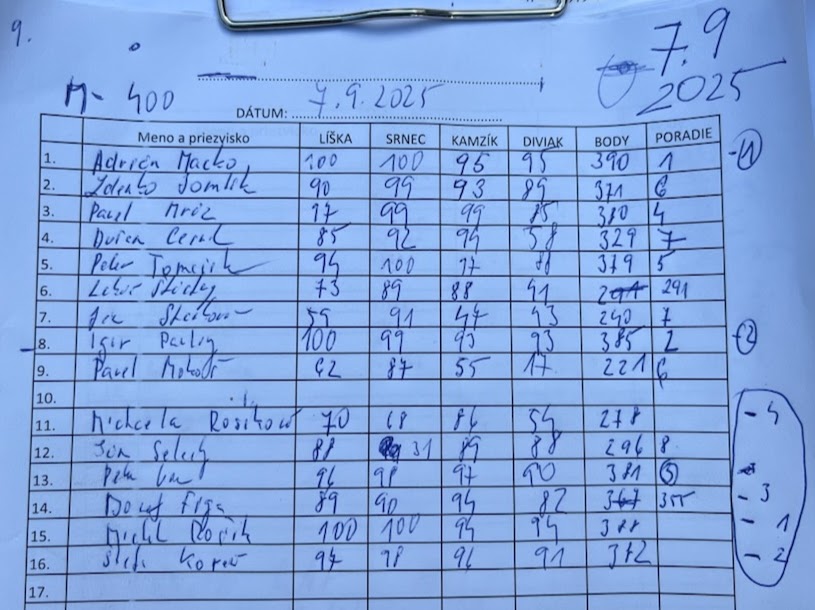 9.
7.9
2025
M-400
DÁTUM: 7.9.2025
Meno a priezvisko LÍŠKA SRNEC KAMZÍK DIVIAK BODY PORADIE
1. Adrián Macko 100 100 95 95 390 1 -1
2. Zdenko 90 99 93 89 371 6
3. Pavel Mráz 97 99 99 85 380 4
4. 85 92 94 58 329 7
5. Peter 94 100 97 88 379 5
6. 73 89 88 41 291 291
7. 59 91 47 43 240 7
8. Igor Pauliy 100 99 93 93 385 2 -2
9. Pavel 62 87 55 17 221 6
10.
11. Michaela 70 68 86 54 278 -4
12. 88 31 89 88 296 8
13. Peter 96 98 97 90 381 3
14. Figa 89 90 94 82 367 355 -3
15. 100 100 94 94 388 - 1
16. 97 98 96 91 382 - 2
17.